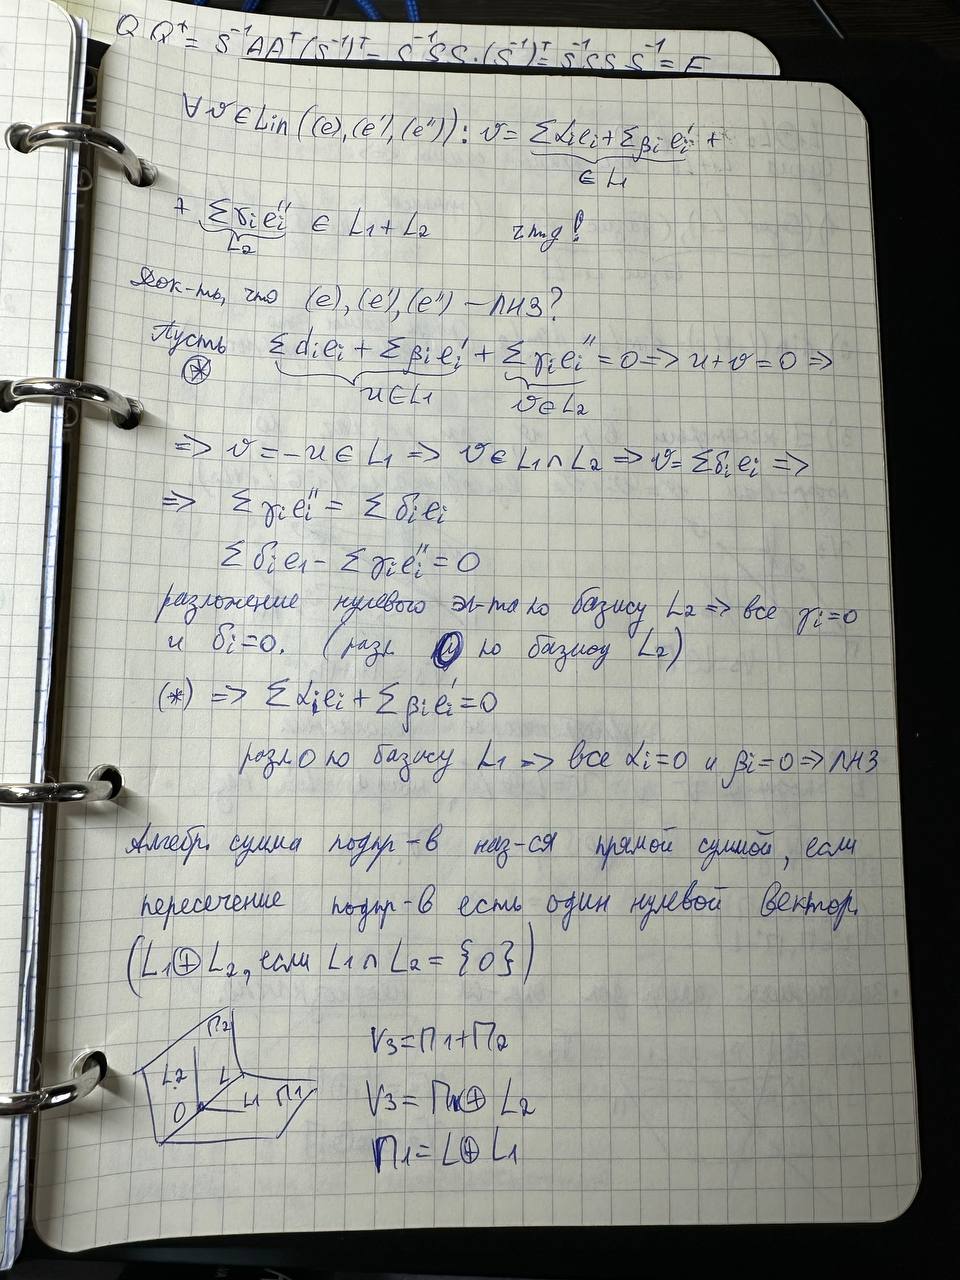 Q Q⁺ = S⁻¹AAᵀ(S⁻¹)ᵀ = S⁻¹SS·(S⁻¹)ᵀ = S⁻¹SS S⁻¹ = E
∀ v ∈ Lin ((e), (e'), (e'')): v = Σαᵢeᵢ + Σβᵢeᵢ' +
∈ L₁
+ Σγᵢeᵢ'' ∈ L₁ + L₂ чтд!
L₂
Док-ть, что (e), (e'), (e'') – ЛНЗ?
Пусть Σαᵢeᵢ + Σβᵢeᵢ' + Σγᵢeᵢ'' = 0 => u + v = 0 =>
(*) u ∈ L₁ v ∈ L₂
=> v = –u ∈ L₁ => v ∈ L₁ ∩ L₂ => v = Σδᵢeᵢ =>
=> Σγᵢeᵢ'' = Σδᵢeᵢ
Σδᵢe₁ – Σγᵢeᵢ'' = 0
разложение нулевого эл-та по базису L₂ => все γᵢ=0
и δᵢ=0. (разл 0 по базису L₂)
(*) => Σαᵢeᵢ + Σβᵢeᵢ' = 0
разл 0 по базису L₁ => все αᵢ=0 и βᵢ=0 => ЛНЗ
Алгебр. сумма подпр-в наз-ся прямой суммой, если
пересечение подпр-в есть один нулевой вектор.
(L₁ ⊕ L₂, если L₁ ∩ L₂ = {0})
П₂
L₂ L
O L₁ П₁
V₃ = П₁ + П₂
V₃ = П₁ ⊕ L₂
П₁ = L ⊕ L₁